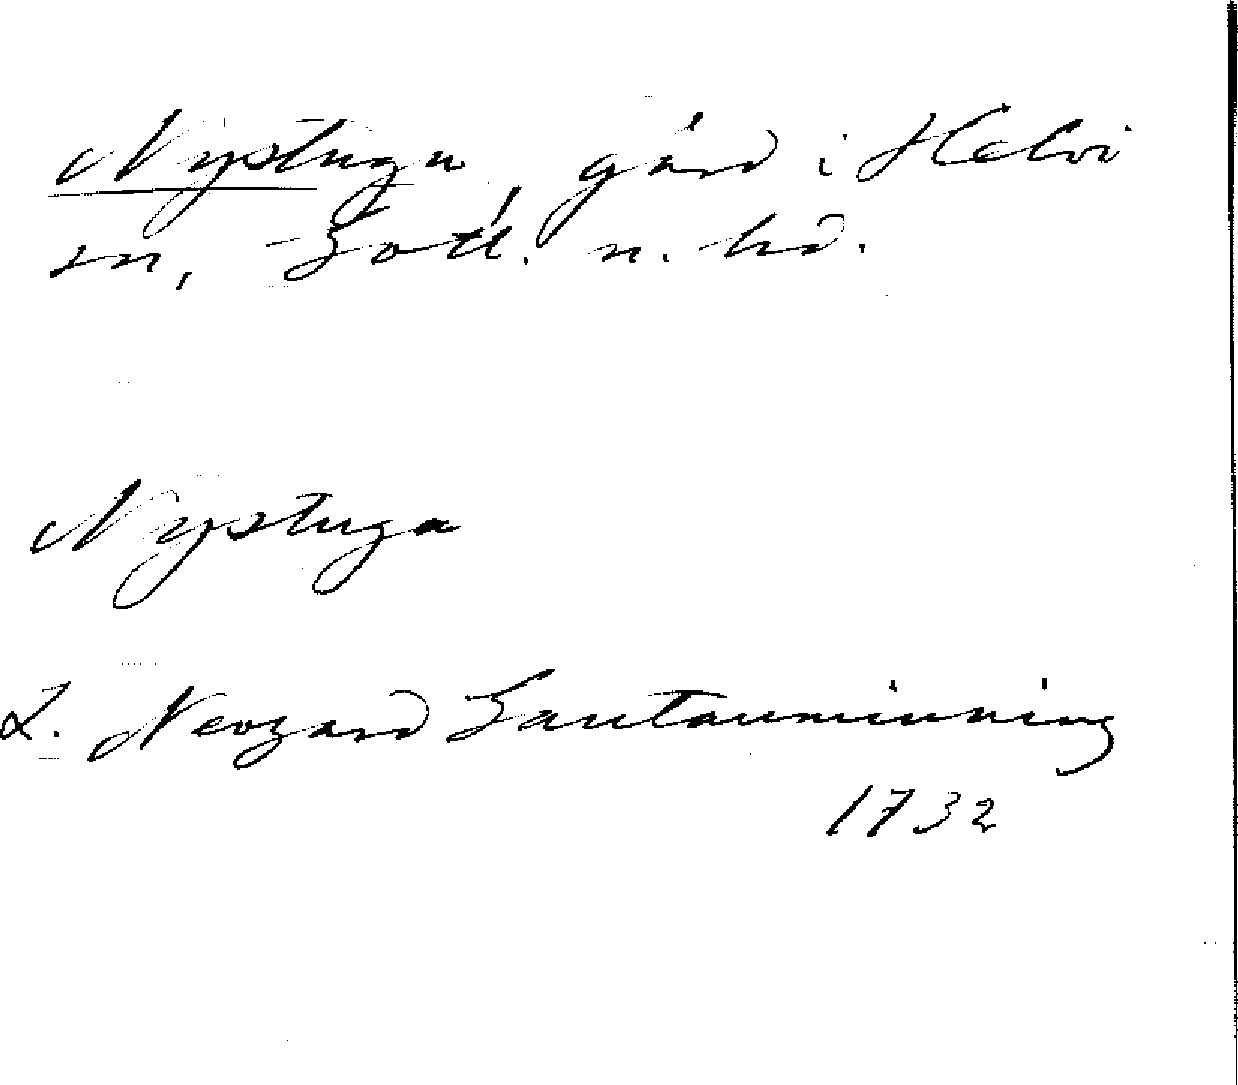 Nystugu, gård i Helvi
sn, Gotl. n. hd.
Nystuga
L. Neogard Gautauminning
1732